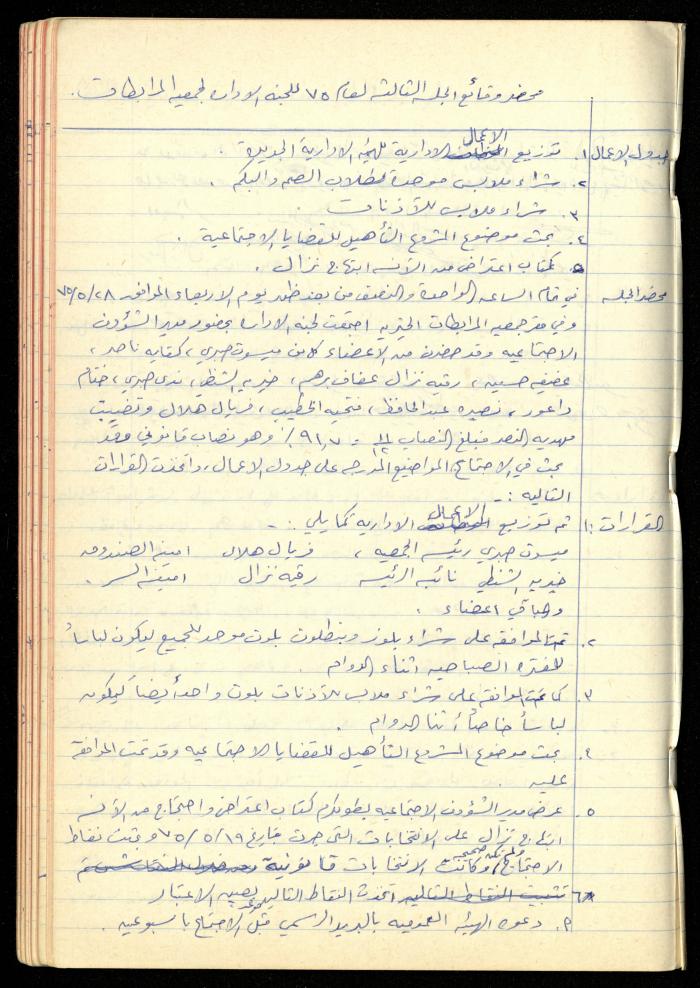 محضر وقائع الجلسة الثالثة لعام ٧٥ للجنة الادارة لجمعية المرابطات.
جدول الاعمال ١. توزيع الاعمال الادارية للهيئة الادارية الجديدة.
٢. شراء ملابس موحدة لطلاب الصم والبكم.
٣. شراء ملابس للآذنات
٤. بحث موضوع المشروع التأهيل للقضايا الاجتماعية.
٥. كتاب اعتراض من الآنسة ابتهاج نزال.
محضر الجلسة في تمام الساعة الواحدة والنصف من بعد ظهر يوم الاربعاء الموافق ٧٥/٥/٢٨
وفي مقر جمعية المرابطات الخيرية اجتمعت لجنة الادارة بحضور مدير الشؤون
الاجتماعية وقد حضرن من الاعضاء كل من ميسون صبري، كفاية ناصر،
عفيفة حسين، رقية نزال عفاف برهم، خيرية الشنطي، ندى صبري، ختام
داعور، نصيره عبد الحافظ، فتحية الخطيب، فريال هلال وتغيبت
مهدية النصر فبلغ النصاب ١١/١٢ = ٩١,٧٪ وهو نصاب قانوني وقد
بحث في الاجتماع المواضيع المدرجة على جدول الاعمال، واتخذت القرارات
التالية :-
القرارات: ١. تم توزيع الاعمال الادارية كما يلي :-
ميسون صبري رئيسة الجمعية، فريال هلال امينة الصندوق
خيرية الشنطي نائبة الرئيسة رقية نزال امينة السر.
والباقي اعضاء.
٢. تمت الموافقة على شراء بلوز وبنطلون بلون موحد للجميع ليكون لباساً
للفترة الصباحية اثناء الدوام.
٣. كما تمت الموافقة على شراء ملابس للآذنات بلون واحد أيضاً ليكون
لباساً خاصاً أثنا الدوام.
٤. بحث موضوع المشروع التأهيل للقضايا الاجتماعية وقد تمت الموافقة
عليه.
٥. عرض مدير الشؤون الاجتماعية بطولكرم كتاب اعتراض واحتجاج من الآنسة
ابتهاج نزال على الانتخابات التي جرت بتاريخ ٧٥/٥/١٩ وبحثت نقاط
الاحتجاج ولم تكن صحيحة وكانت الانتخابات قانونية
تثبيت النقاط التالية اتخذت النقاط التالية بعين الاعتبار
٩. دعوة الهيئة العمومية بالبريد الرسمي قبل الاجتماع باسبوعين.